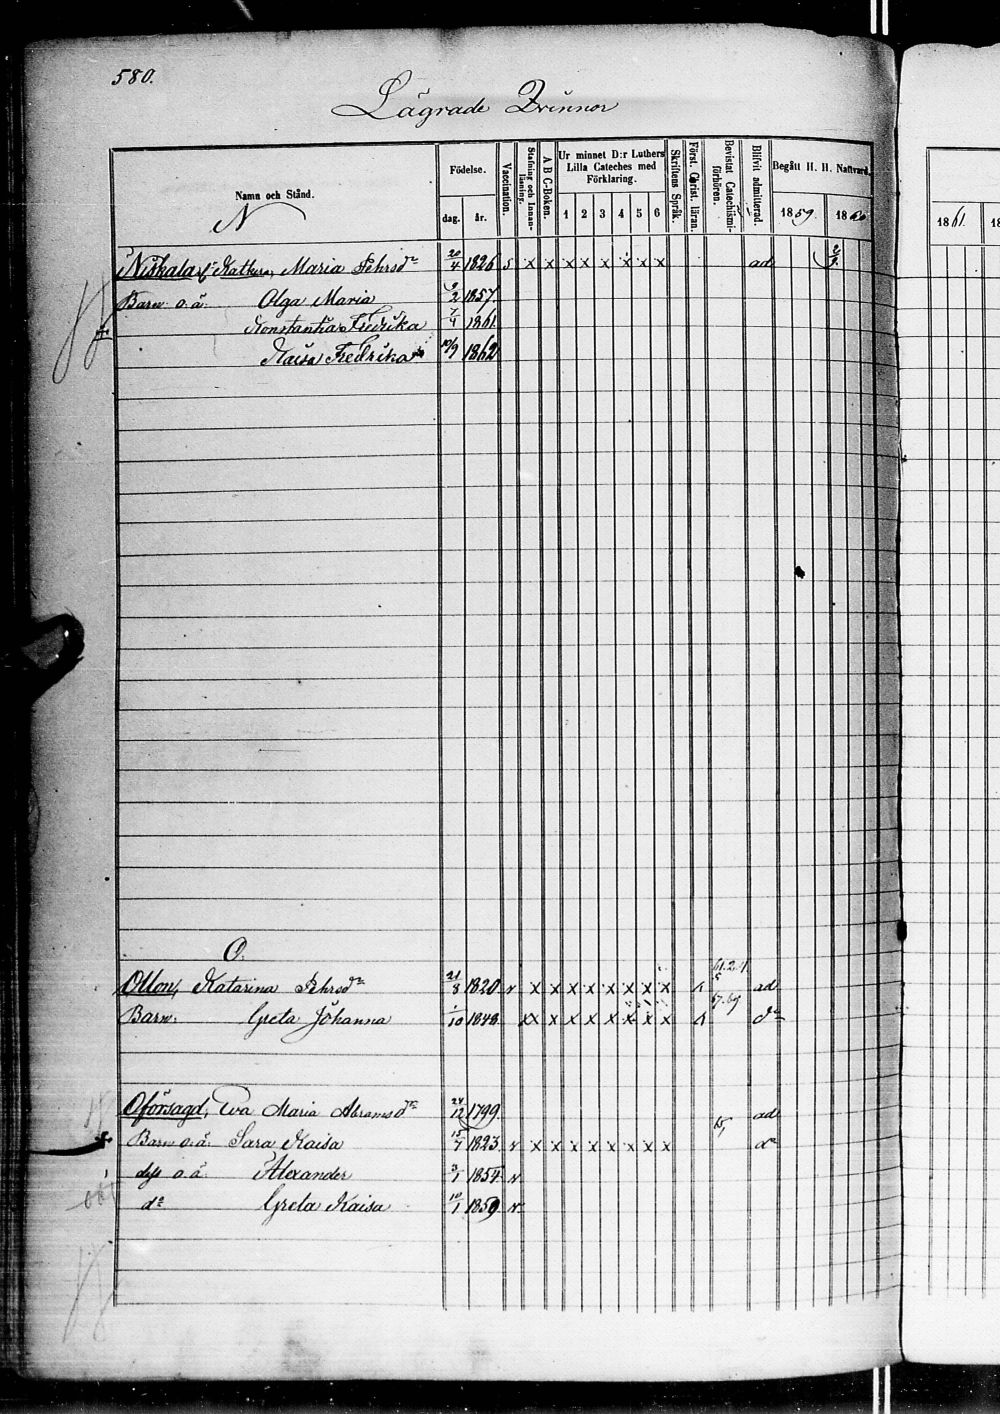 580.
Lägrade Qvinnor
Namn och Stånd.
N
Födelse.
dag.
år.
Vaccination.
Stafning och Innan-läsning.
A B C-Boken.
Ur minnet D:r Luthers Lilla Cateches med Förklaring.
1 2 3 4 5 6
Skriftens Språk.
Först. Christ. läran.
Bevistat Catechismi-förhören.
Blifvit admitterad.
Begått H. H. Nattvard.
1859. 1860
1861. 18
Niskala, Maria Pehrsdr 20/4 1826 s x x x x x x x x ad
Barn o.ä. Olga Maria 9/2 1857.
Konstantia Fredrika 7/4 1861.
Kaisa Fredrika 10/9 1862
O.
Ollon, Katarina Pehrsdr 21/8 1820 v x x x x x x x x ad
Barn: Greta Johanna 1/10 1848. x x x x x x x x 67.69 do
Oförsagd, Eva Maria Abramsdr 24/12 1799. ad
Barn o.ä. Sara Kaisa 15/7 1823. v x x x x x x x x 65, do
dess o.ä. Alexander 3/1 1854 v
do Greta Kaisa 10/1 1859 v